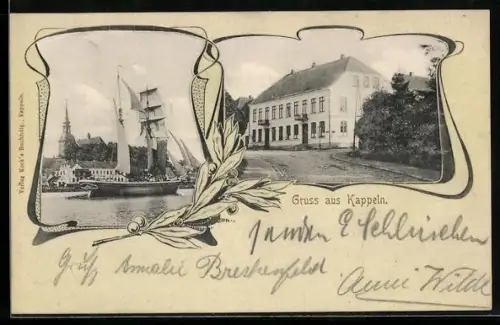 Verlag Koch's Buchhdlg., Kappeln.
Gruss aus Kappeln.
senden E Schlrischen
Gruß Annalie Breskenfeld
Anni Wilde